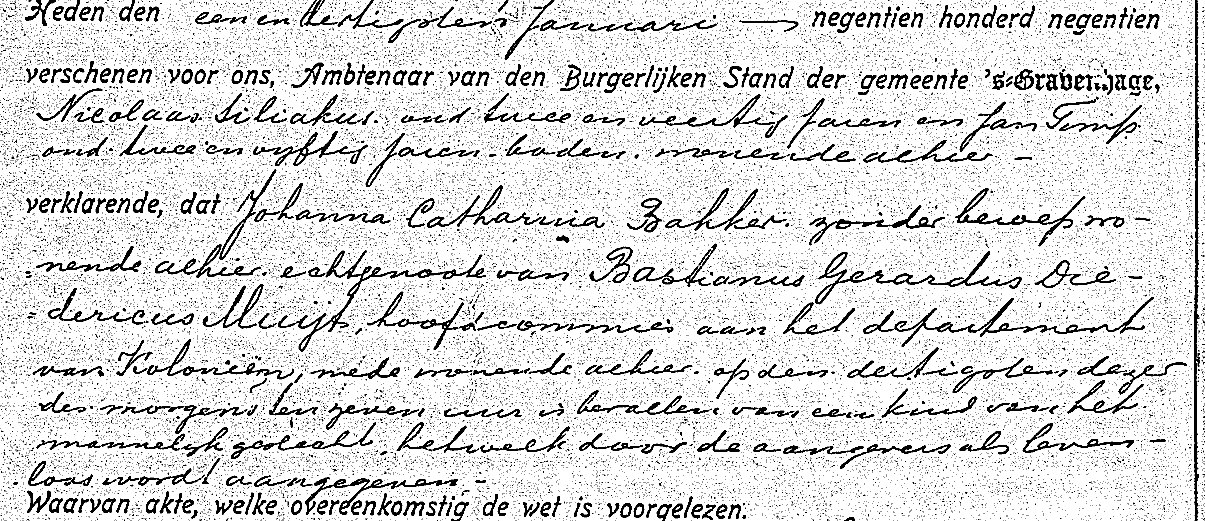 Heden den een en dertigsten Januari negentien honderd negentien
verschenen voor ons, Ambtenaar van den Burgerlijken Stand der gemeente 's-Gravenhage,
Nicolaas Siliakus. oud twee en veertig jaren en Jan
oud twee en vijftig jaren. boden. wonende alhier –
verklarende, dat Johanna Catharina Bakker. zonder beroep wo-
nende alhier. echtgenoote van Bastianus Gerardus Die-
dericus Muijt, hoofdcommies aan het departement
van Koloniën, mede wonende alhier. op den dertigsten dezer
des morgens ten zeven uur is bevallen van een kind van het
mannelijk geslacht, hetwelk door de aangevers als leven-
loos wordt aangegeven. –
Waarvan akte, welke overeenkomstig de wet is voorgelezen.